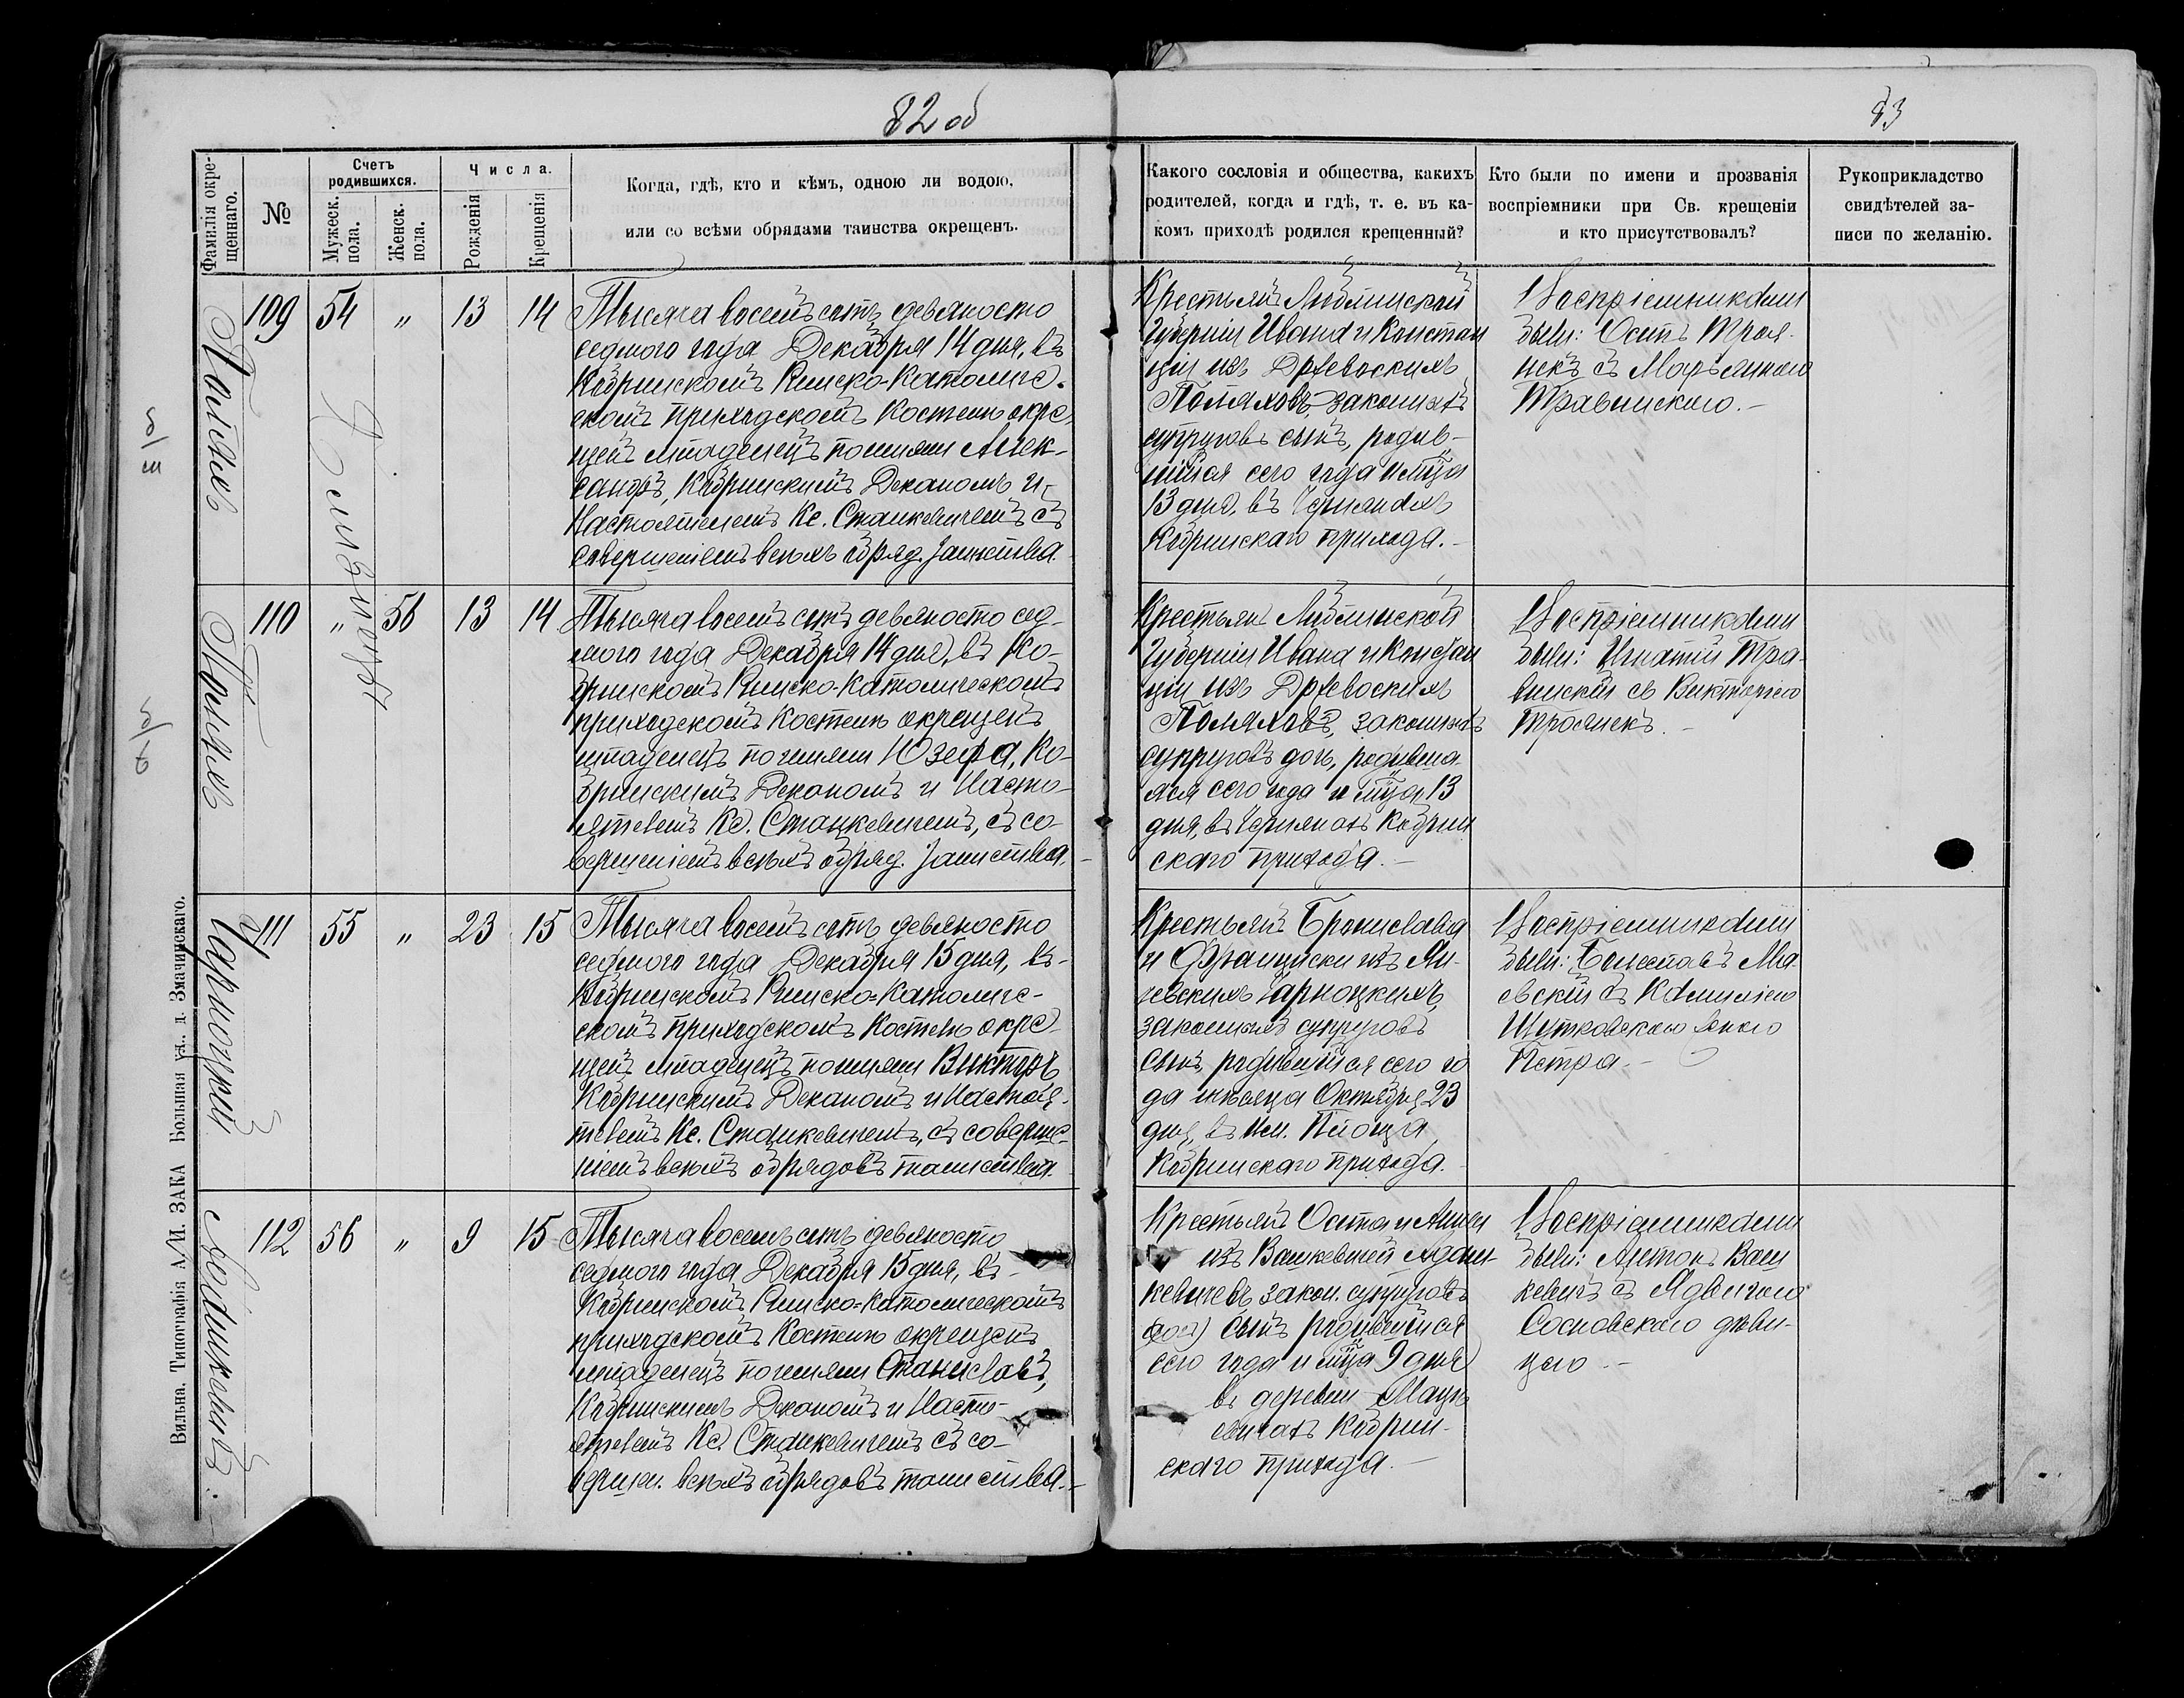 82 об
83
Фамилія окре-
щеннаго.
№
Счетъ
родившихся.
Мужеск.
пола.
Женск.
пола.
Числа.
Рожденія
Крещенія
Когда, гдѣ, кто и кѣмъ, одною ли водою,
или со всѣми обрядами таинства окрещенъ.
Какого сословія и общества, какихъ
родителей, когда и гдѣ, т. е. въ ка-
комъ приходѣ родился крещенный?
Кто были по имени и прозванія
воспріемники при Св. крещеніи
и кто присутствовалъ?
Рукоприкладство
свидѣтелей за-
писи по желанію.
Полякъ
109 54 „ 13 14
Тысяча восемьсотъ девяносто
седмого года Декабря 14 дня, въ
Кобринскомъ Римско-Католиче-
скомъ приходскомъ Костелѣ окре-
щенъ младенецъ по имени Алек-
сандръ, Кобринскимъ Деканомъ и
Настоятелемъ Кс. Станкевичемъ съ
совершеніемъ всѣхъ обряд. Таинства
Крестьянъ Люблинской
Губерніи Ивана и Констан
ціи изъ
Поляковъ законныхъ
супруговъ сынъ, родив-
шійся сего года и мца
13 дня, въ
Кобринскаго прихода.
Воспріемниками
были: Осипъ Троя-
некъ съ Марьянною
Травинскою.
Близнецы
Полякъ
110 „ 56 13 14
Тысяча восемьсотъ девяносто сед-
мого года Декабря 14 дня, въ Ко-
бринскомъ Римско-Католическомъ
приходскомъ Костелѣ окрещенъ
младенецъ по имени Юзефа, Ко-
бринскимъ Деканомъ и Насто-
ятелемъ Кс. Станкевичемъ, съ со-
вершеніемъ всѣхъ обряд. Таинства.
Крестьянъ Люблинской
Губерніи Ивана и Констан
ціи изъ
Поляковъ, законныхъ
супруговъ дочь, родивша-
яся сего года и мца 13
дня, въ Кобрин
скаго прихода.
Воспріемниками
были: Игнатій Тра-
винскій съ Викторіею
Троянекъ.
Чарноцкій
111 55 „ 23 15
Тысяча восемьсотъ девяносто
седмого года Декабря 15 дня, въ
Кобринскомъ Римско-Католиче-
скомъ приходскомъ Костелѣ окре-
щенъ младенецъ по имени Викторъ
Кобринскимъ Деканомъ и Настоя-
телемъ Кс. Станкевичемъ, съ соверше-
ніемъ всѣхъ обрядовъ таинства.
Крестьянъ Бронислава
и Франциски изъ
Чарноцкихъ,
законныхъ супруговъ
сынъ, родившійся сего го
да мѣсяца Октября 23
дня, въ им.
Кобринскаго прихода.
Воспріемниками
были: Болеславъ
съ Камиліею
Шутковскою женою
Петра.
Адамкевичъ
112 56 „ 9 15
Тысяча восемьсотъ девяносто
седмого года Декабря 15 дня, въ
Кобринскомъ Римско-Католическомъ
приходскомъ Костелѣ окрещенъ
младенецъ по имени Станиславъ,
Кобринскимъ Деканомъ и Насто-
ятелемъ Кс. Станкевичемъ съ со-
вершен. всѣхъ обрядовъ таинства.
Крестьянъ Осипа и Анны
изъ Вашкевичей Адам-
кевичевъ закон. супруговъ
сынъ родившійся
сего года и мца 9 дня
въ деревни
Кобрин-
скаго прихода.
Воспріемниками
были: Антонъ Ваш
кевичъ съ Ядвигою
Сосновскою дѣви-
цею.
Вильна. Типографія А/И. ЗАКА Большая ул., д. Змачинскаго.